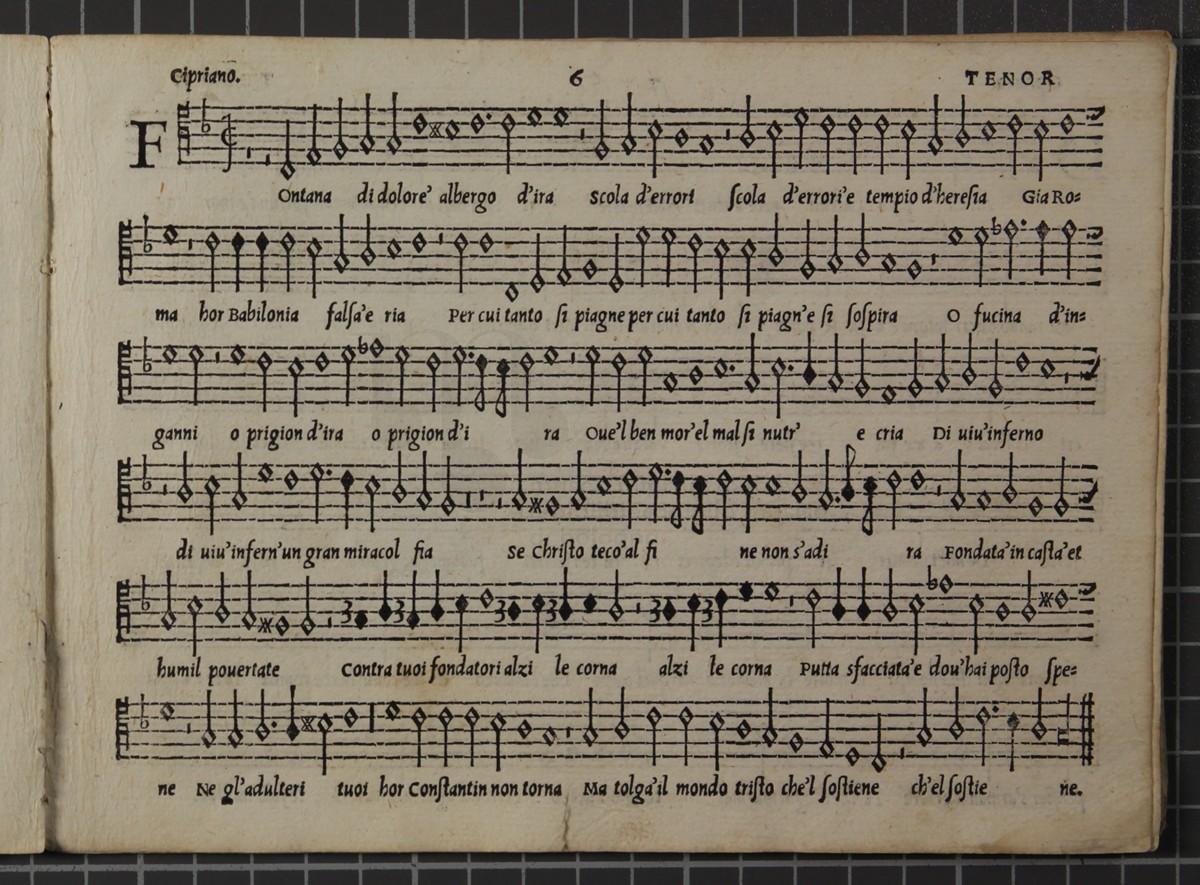 Cipriano. 6 TENOR
F
Ontana di dolore' albergo d'ira Scola d'errori ſcola d'errori'e tempio d'hereſia Gia Ro=
ma hor Babilonia falſa'e ria Per cui tanto ſi piagne per cui tanto ſi piagn'e ſi ſoſpira O fucina d'in=
ganni o prigion d'ira o prigion d'i ra Oue'l ben mor'el mal ſi nutr' e cria Di uiu'inferno
di uiu'infern'un gran miracol fia Se Chriſto teco'al fi ne non s'adi ra Fondata'in caſta'et
humil pouertate Contra tuoi fondatori alzi le corna alzi le corna Putta sfacciata'e dou'hai poſto ſpe=
3 3 3 3 3 3
ne Ne gl'adulteri tuoi hor Conſtantin non torna Ma tolga'il mondo triſto che'l ſoſtiene ch'el ſoſtie ne.